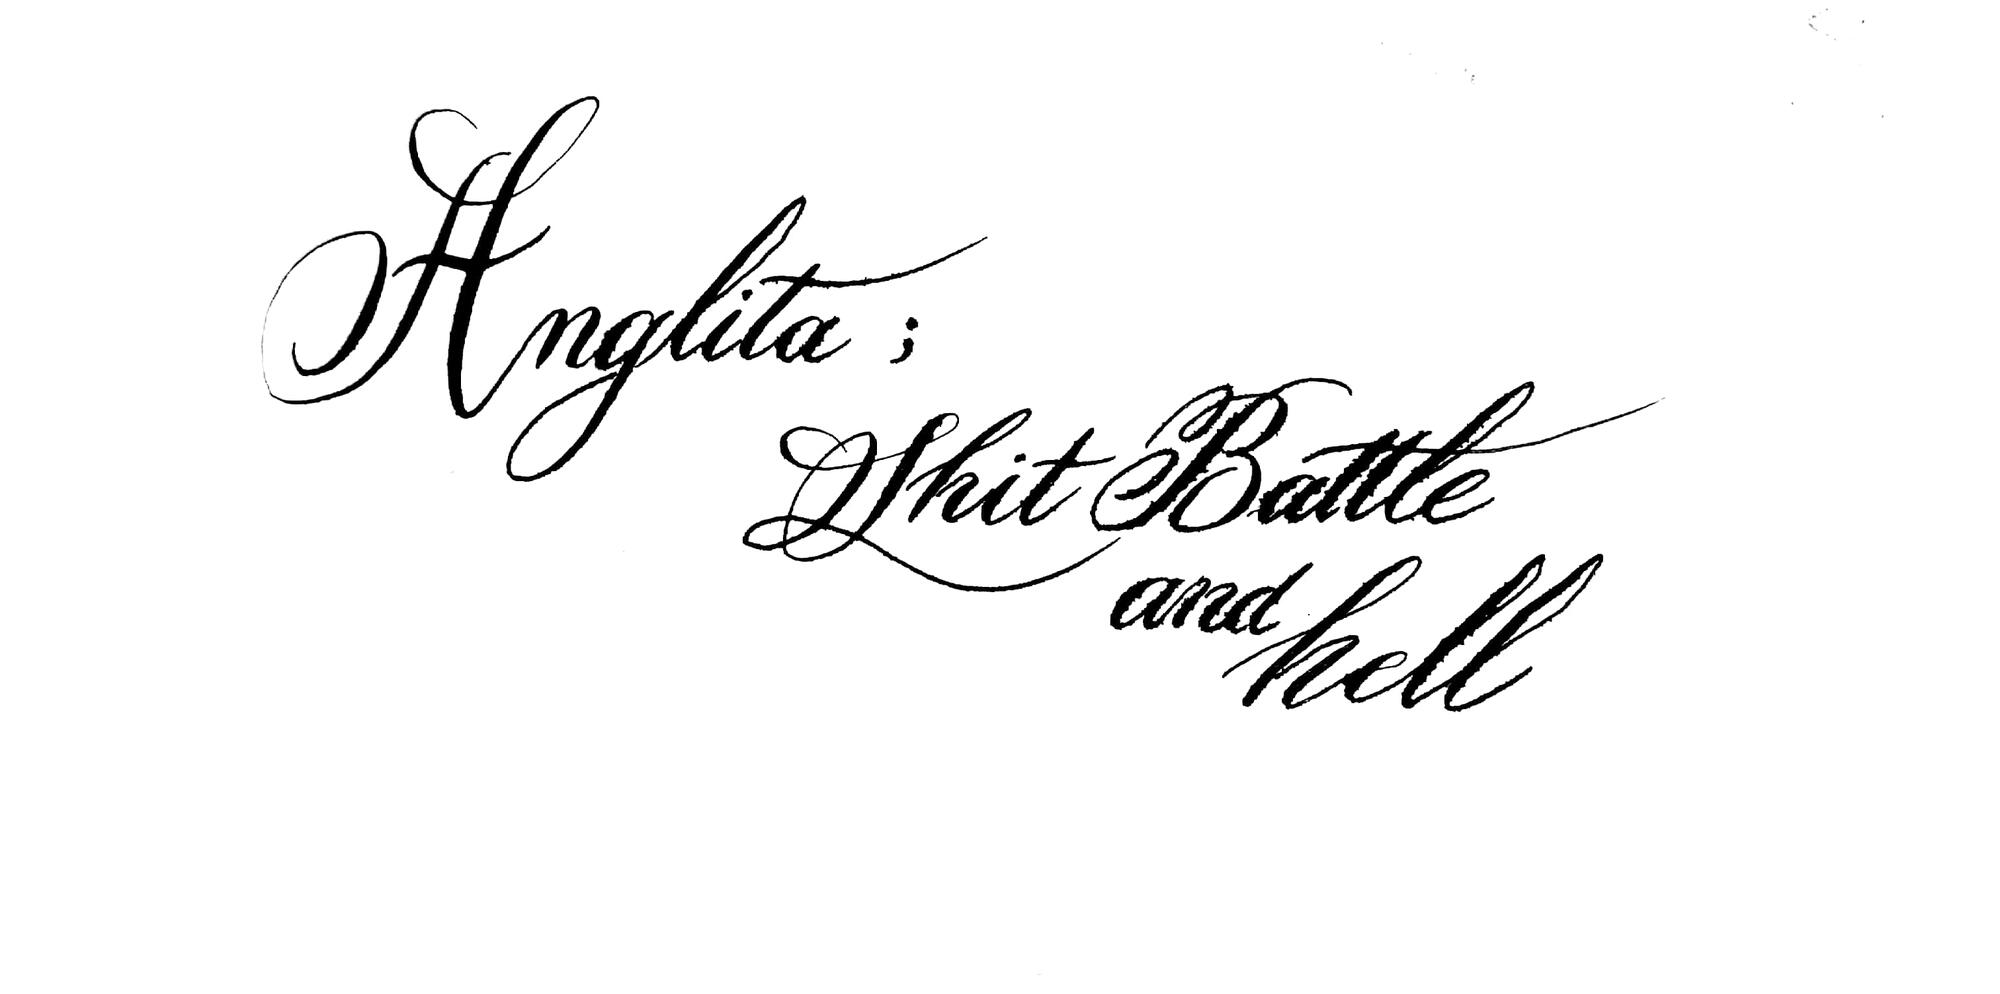 Anglita ;
Shit Battle
and
hell